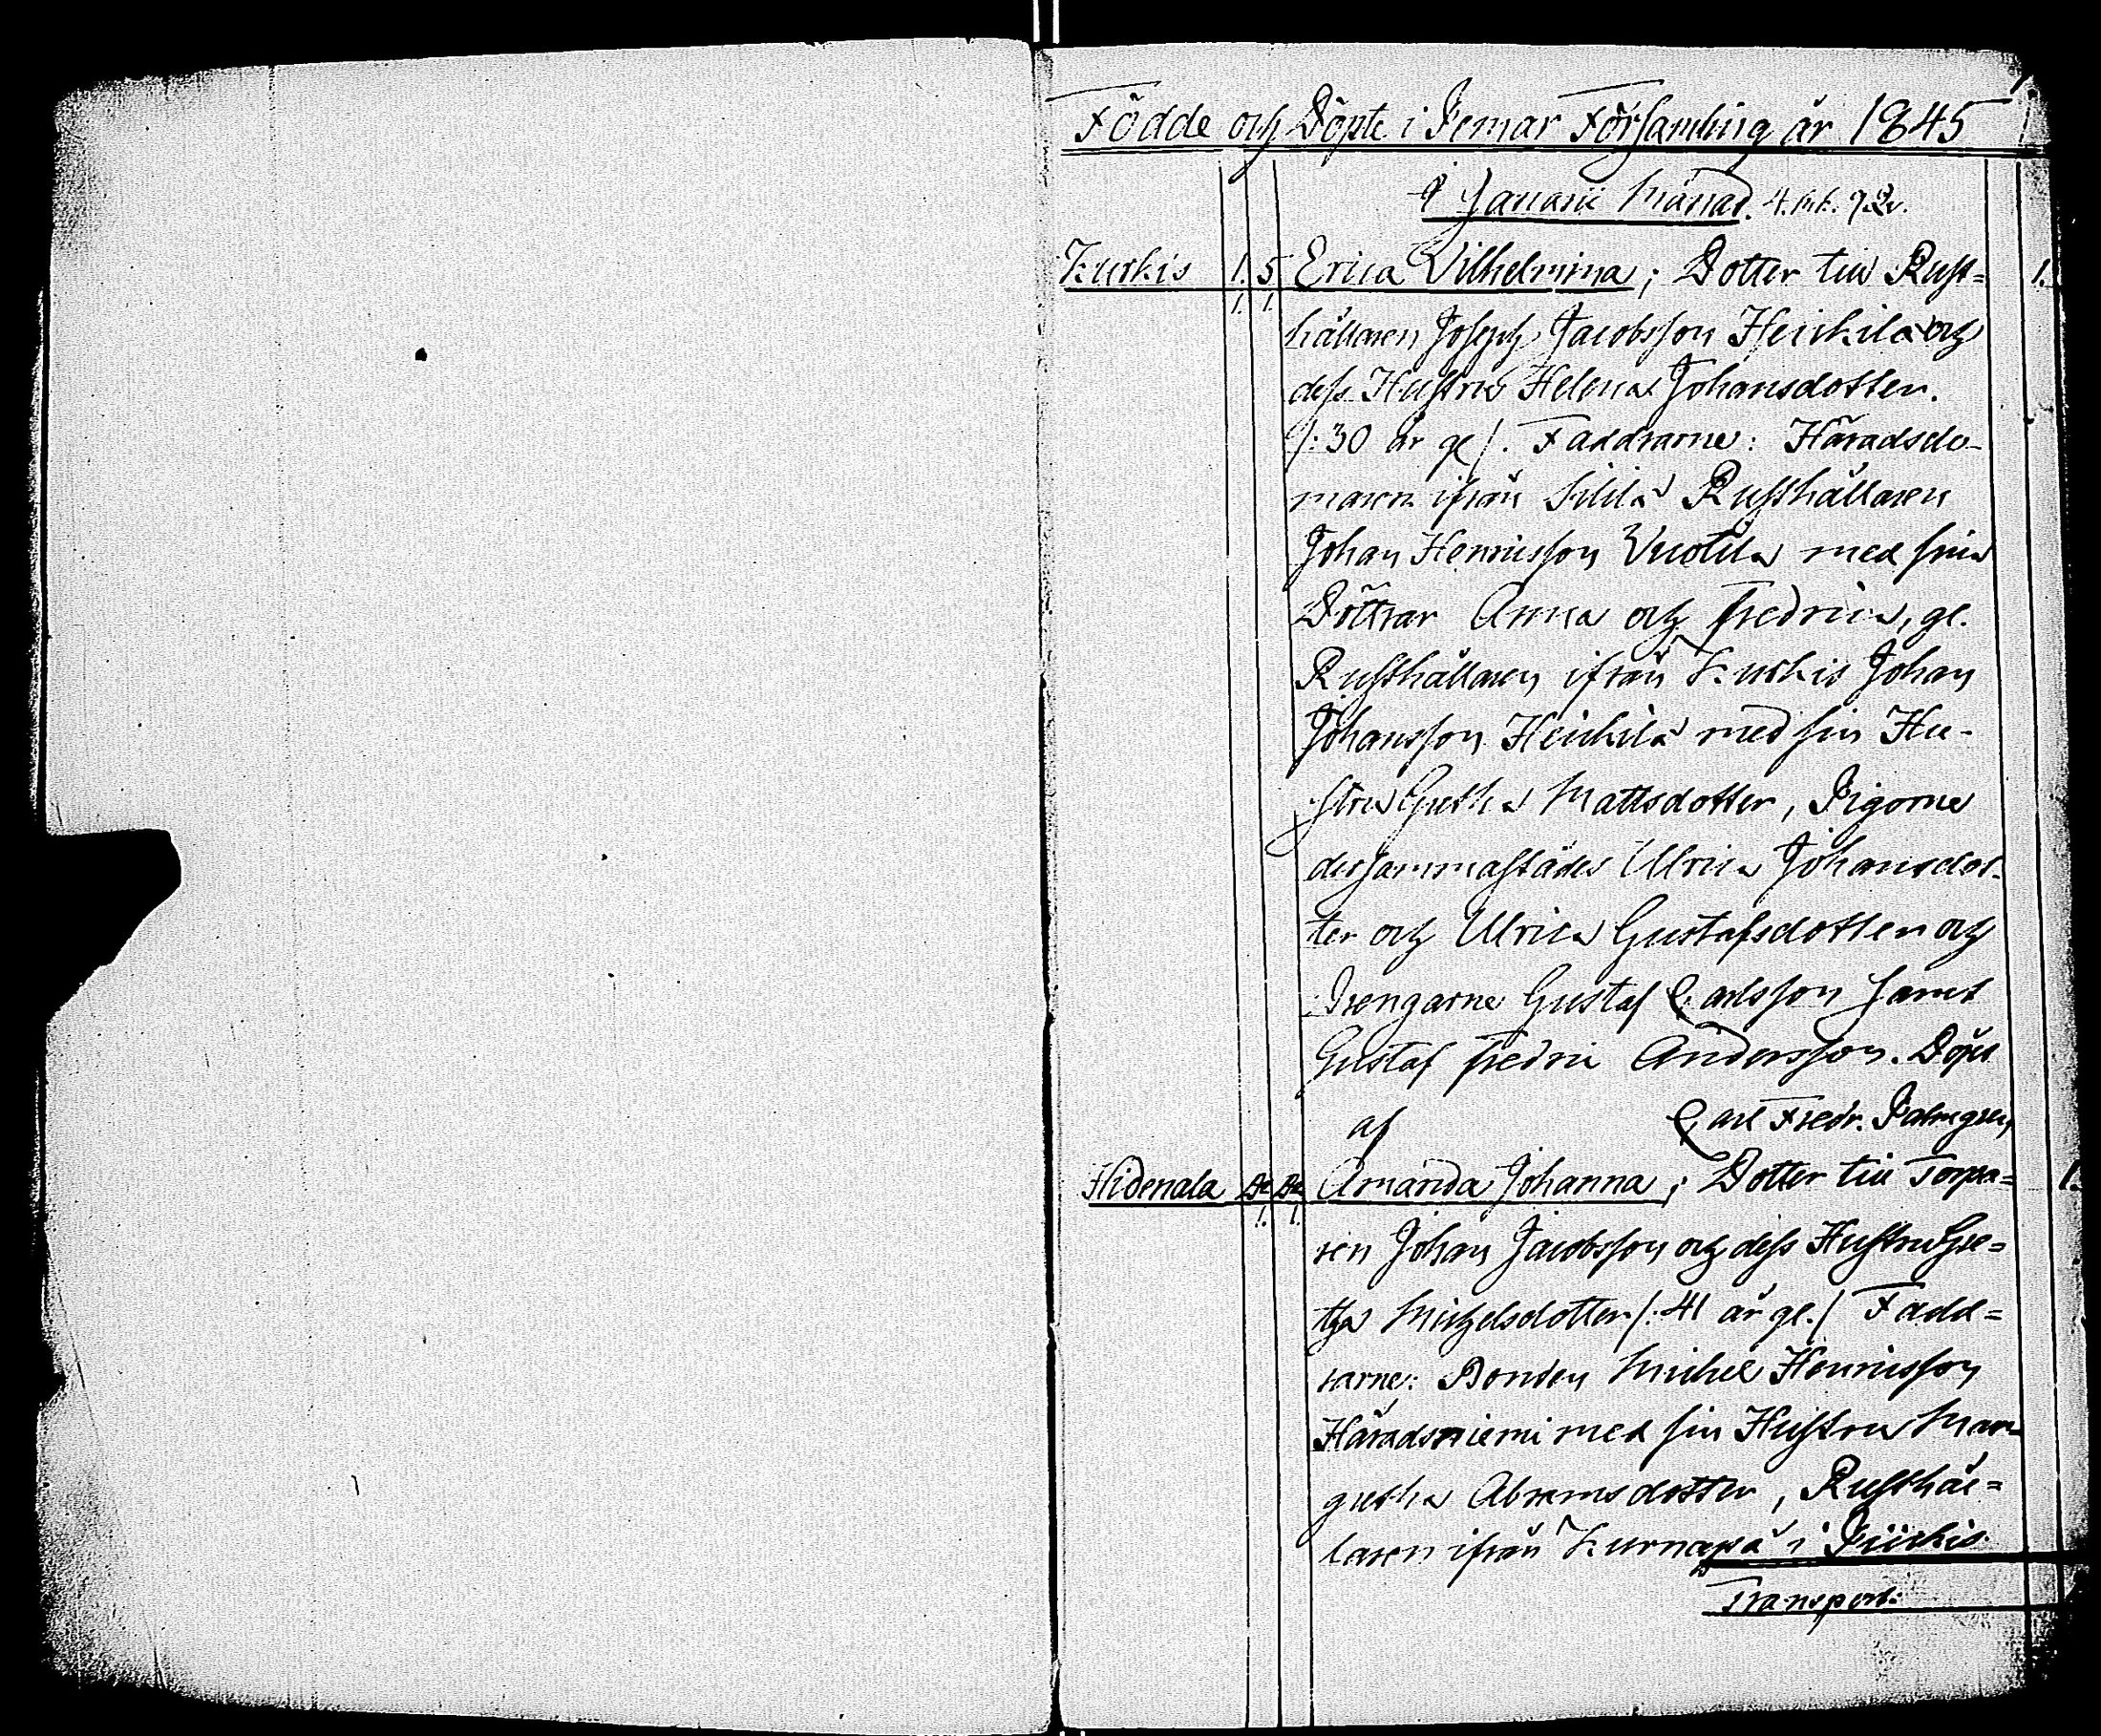 Födde och Döpte i Pemar Församling år 1845
I Januarii Månad.
Kurkis 1. 5 Erica Vilhelmina; Dotter till Rust= 1.
1. 1.
hållaren Joseph Jacobsson Heickilä och
dess Hustru Helena Johansdotter.
/: 30 år gl /. Faddrarne: Häradsdo-
maren ifrån Rusthållaren
Johan Henricsson Vuotila med sina
Döttrar Anna och Fredrica, gl.
Rusthållaren ifrån Kurkis Johan
Johansson Heickilä med sin Hu-
stru Gretha Mattsdotter, Pigorne
dersammastädes Ulrica Johansdot-
ter och Ulrica Gustafsdotter och
Drengarne Gustaf Carlsson samt
Gustaf Fredric Andersson. Döpt
af Carl Fredr. Palmgren
Hidenala Do Do Amanda Johanna; Dotter till Torpa= 1.
1. 1.
ren Johan Jacobsson och dess Hustru Gre=
tha Michelsdotter /: 41 år gl. / Fadd=
rarne: Bonden Michel Henricsson
Häradsniemi med sin Hustru Mar-
gretha Abramsdotter, Rusthål=
laren ifrån Kurnapä i Piikkis
Transport: